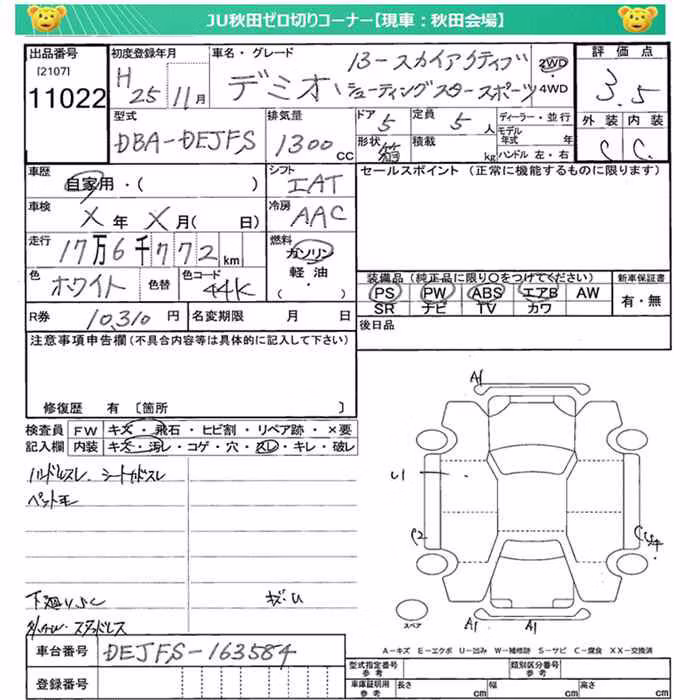 JU秋田ゼロ切りコーナー【現車：秋田会場】
出品番号
[2107]
11022
初度登録年月
H25年11月
車名・グレード
デミオ 13-スカイアクティブ シューティングスタースポーツ
2WD・4WD
評価点
3.5
外装 内装
C C
型式
DBA-DEJFS
排気量
1300cc
ドア
5
定員
5人
形状
積載
kg
ディーラー・並行
モデル年式 年
ハンドル 左・右
車歴
自家用・( )
シフト
IAT
セールスポイント (正常に機能するものに限ります)
車検
X年X月( 日)
冷房
AAC
走行
17万6千772km
燃料
ガソリン
軽・油
・( )
色
ホワイト
色替
色コード
44K
装備品 (純正品に限り○をつけてください)
新車保証書
PS PW ABS エアB AW
SR ナビ TV カワ
有・無
R券
10,310円
名変期限 月 日
後日品
注意事項申告欄(不具合内容等は具体的に記入して下さい)
修復歴 有 〔箇所 〕
検査員
記入欄
FW キズ・飛石・ヒビ割・リペア跡・×要
内装 キズ・汚レ・コゲ・穴・スレ・キレ・破レ
ハンドルスレ、シート
ペット毛
下廻りサビ
キズ・U
スタッドレス
A1
U1
C2
A1 A1
スペア
A-キズ E-エクボ U-凹み W-補修跡 S-サビ C-腐食 XX-交換済
車台番号
DEJFS-163584
登録番号
型式指定番号
参考
類別区分番号
参考
車庫証明用
参考
長さ cm
幅 cm
高さ cm